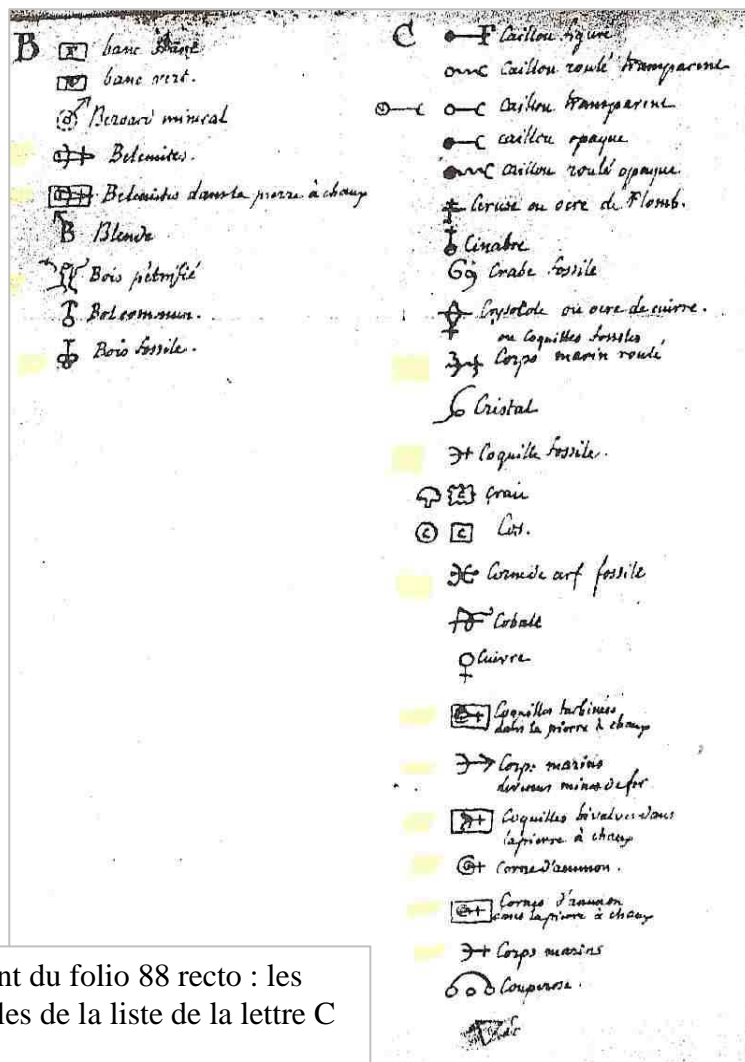 B
banc
banc vert.
minéral
Belemites.
Belemites dans la pierre à chaux
B Blende
Bois pétrifié
Bol commun.
Bois fossile.
C
Caillou figuré
Caillou roulé transparent
Caillou transparent
caillou opaque
caillou roulé opaque.
Ceruse ou ocre de Plomb.
Cinabre
Crabe fossile
ou ocre de cuivre.
ou coquilles fossiles
Corps marin roulé
Cristal
Coquille fossile.
craie
Cos.
fossile
Cobalt
Cuivre
Coquilles turbinées
dans la pierre à chaux
Corps marins
mines de fer
Coquilles bivalves dans
la pierre à chaux
Corne d'ammon.
Cornes d'ammon
dans la pierre à chaux
Corps marins
Couperose.
nt du folio 88 recto : les
les de la liste de la lettre C